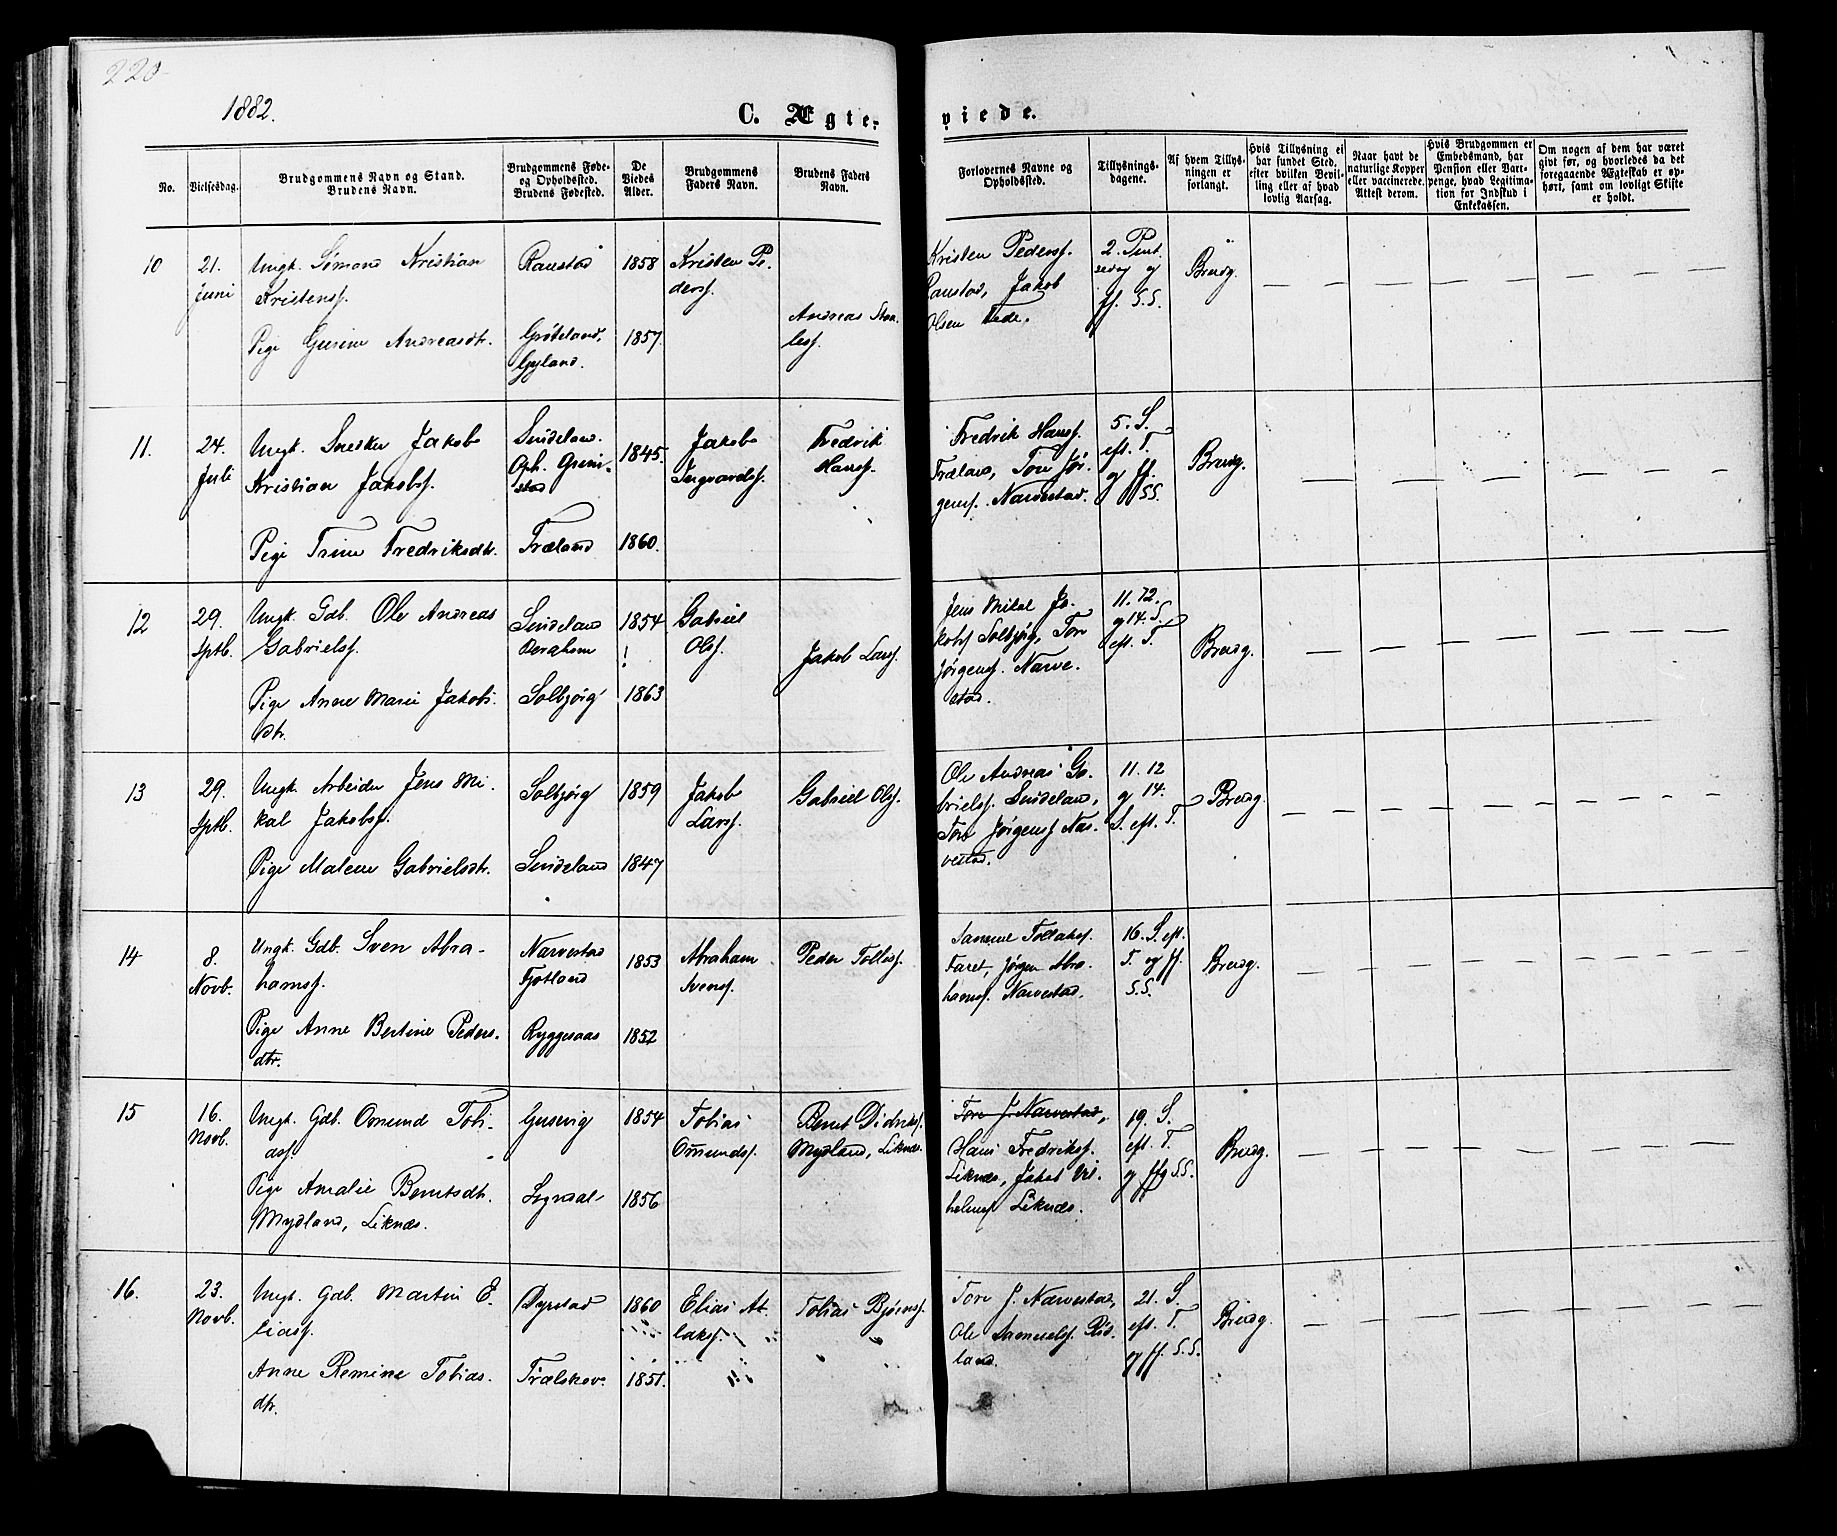 220
1882.
C. Ægte-
viede.
No.
Vielsesdag.
Brudgommens Navn og Stand.
Brudens Navn.
Brudgommens Føde-
og Opholdssted.
Brudens Fødested.
De
Viedes
Alder.
Brudgommens
Faders Navn.
Brudens Faders
Navn.
Forlovernes Navne og
Opholdssted.
Tillysnings-
dagene.
Af hvem Tillys-
ningen er
forlangt.
Hvis Tillysning ei
har fundet Sted,
efter hvilken Bevil-
ling eller af hvad
lovlig Aarsag.
Naar havt de
naturlige Kopper
eller vaccinerede.
Attest derom.
Hvis Brudgommen er
Embedsmand, har
Pension eller Vart-
penge, hvad Legitima-
tion for Indskud i
Enkekassen.
Om nogen af dem har været
givt før, og hvorledes da det
foregaaende Ægteskab er op-
hørt, samt om lovligt Skifte
er holdt.
10
21.
Juni
Ungk. Simond Kristian
Kristensf.
Pige Gurine Andreasdtr.
Raustad
Gyland.
1858
1857.
Kristen Pe-
dersf.
Andreas
lesf.
Kristen Pedersf.
Raustad, Jakob
Olsen Tede.
2. Pint-
sedag og
ff. S.S.
Brudg.
11.
24.
Juli
Ungk. Snedker Jakob
Kristian Jakobsf.
Pige Trine Fredriksdtr.
Sindeland.
Oph. Grim-
stad
Træland
1845.
1860.
Jakob
Ingvardsf.
Fredrik
Hansf.
Fredrik Hansf.
Træland, Tore Jør-
gensf. Narvestad.
5. S.
eft. T.
og ff.
SS.
Brudg.
12
29.
Sptb.
Ungk. Gdb. Ole Andreas
Gabrielsf.
Pige Anne Marie Jakobs-
dtr.
Sindeland
Solbjørg
1854
!
1863
Gabriel
Olsf.
Jakob Larsf.
Jens Mikal Ja-
kobsf Solbjørg, Tore
Jørgensf. Narve-
stad.
11. 12.
og 14. S.
eft. T.
Brudg.
13
29.
Sptb.
Ungk. Arbeider Jens Mi-
kal Jakobsf.
Pige Malene Gabrielsdtr.
Solbjørg
Sindeland
1859
1847
Jakob
Larsf.
Gabriel Olsf.
Ole Andreas Ga-
brielsf. Sindeland,
Tore Jørgensf Nar-
vestad.
11. 12
og 14.
S. eft. T.
Brudg.
14
8.
Novb.
Ungk. Gdb. Sven Abra-
hamsf.
Pige Anne Bertine Peders-
dtr.
Narvestad
Fjotland
Ryggesaas
1853
1852
Abraham
Svensf.
Peder Tollisf.
Samuel Tollaksf.
Faret, Jørgen Abra-
hamsf. Narvestad.
16. S. eft.
T. og ff.
S.S.
Brudg.
15
16.
Novb.
Ungk. Gdb. Omund Tobi-
asf.
Pige Amalie Berntsdtr.
Mydland, Liknes.
Gusevig
Sogndal
1854
1856
Tobias
Omundsf.
Bernt Didriksf.
Mydland, Liknes.
Tore J. Narvestad,
Hans Fredriksf.
Liknes, Jakob Vil-
helmsf Liknes.
19. S.
eft. T.
og ffg S.S.
Brudg.
16.
23.
Novb.
Ungk. Gdb. Martin E-
liasf.
Anne Remine Tobias-
dtr.
Dyrstad
Trælskov.
1860
1851.
Elias At-
laksf.
Tobias Bjørnsf.
Tore J. Narvestad,
Ole Samuelsf. Rød-
land.
21. S.
eft. T.
og ff. S.S.
Brudg.